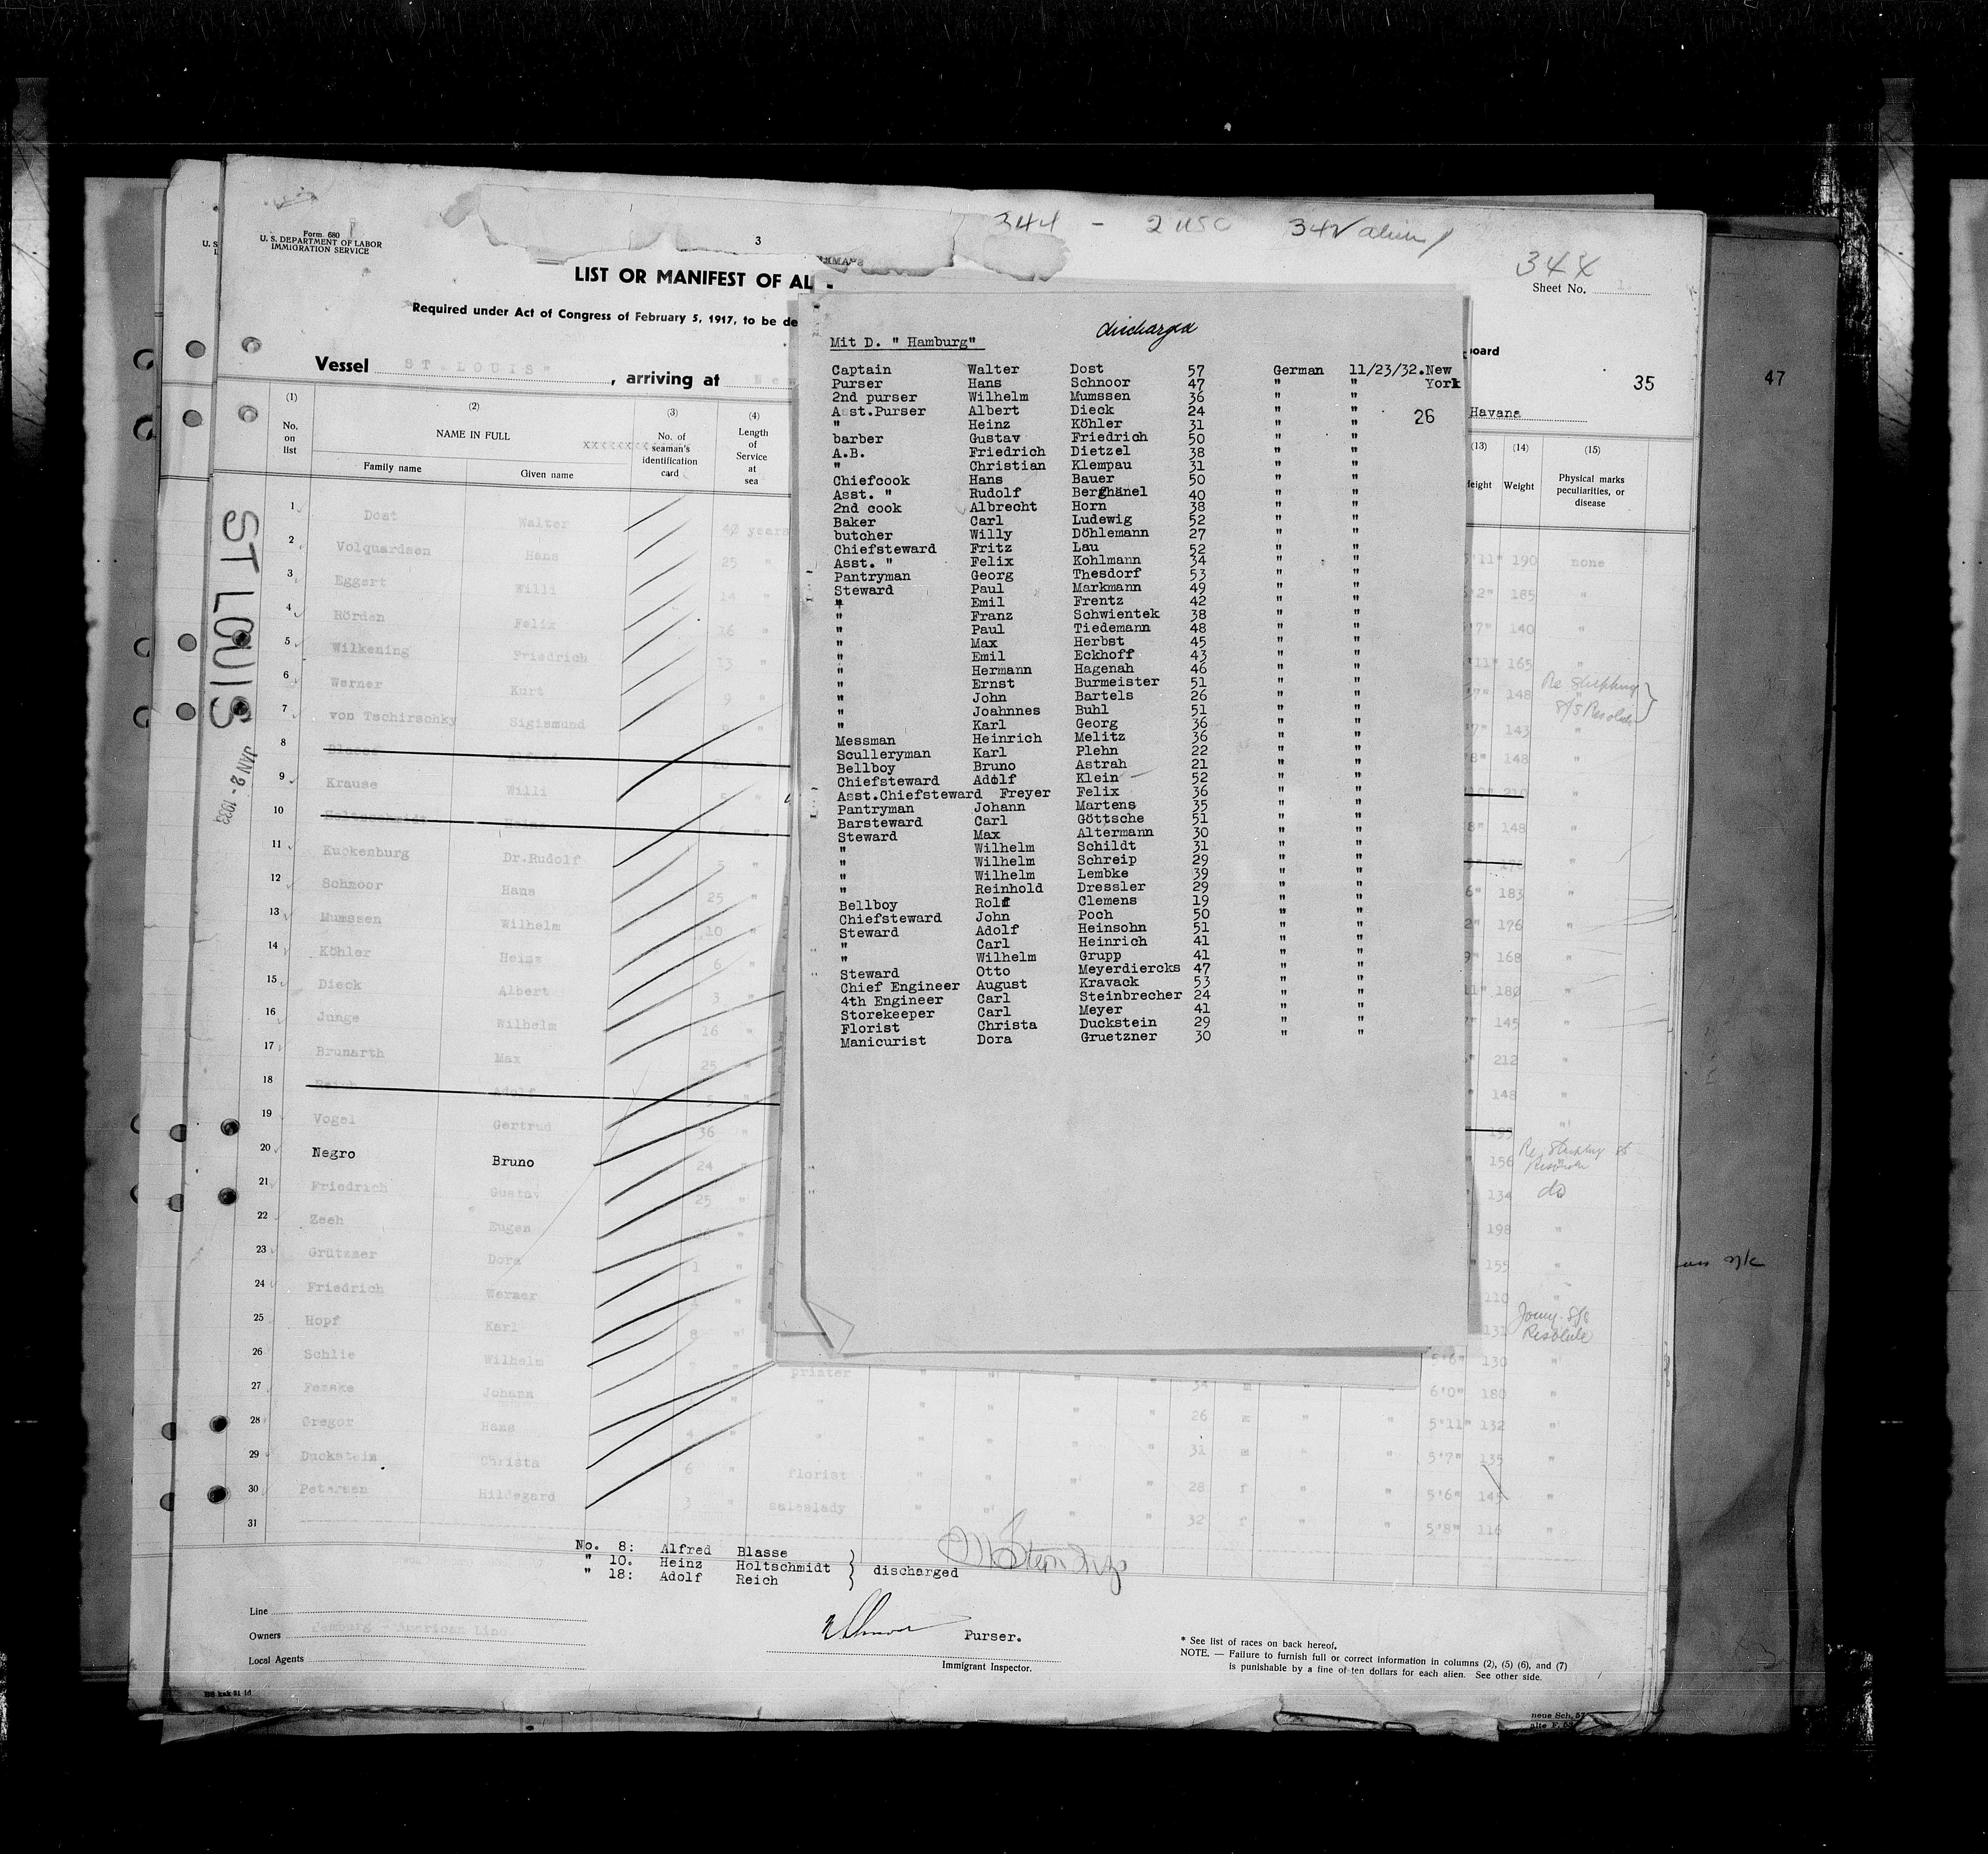 344 - 2 USC 34
344
Form 680
U. S. DEPARTMENT OF LABOR
IMMIGRATION SERVICE
3
LIST OR MANIFEST OF AL
Sheet No. 1
Required under Act of Congress of February 5, 1917, to be de
board
Vessel ST. LOUIS" , arriving at New
35
47
Havana
(1) (2) (3) (4)
No. on list
NAME IN FULL
xxxxxxxxxxxxx
No. of seaman's identification card
Length of Service at sea
Family name Given name
(13) (14) (15)
Height Weight Physical marks peculiarities, or disease
ST LOUIS
JAN 2 - 1933
1 Dost Walter 40 years
2 Volquardsen Hans 25 "
3 Eggert Willi 14 "
4 Rörden Felix 16 "
5 Wilkening Friedrich 13 "
6 Werner Kurt 9 "
7 von Tschirschky Sigismund
8 Blasse Alfred
9 Krause Willi 5 "
10 Holtzschmidt Heinz
11 Kuckenburg Dr.Rudolf 5 "
12 Schnoor Hans 25 "
13 Mumssen Wilhelm 10 "
14 Köhler Heinz 6 "
15 Dieck Albert 3 "
16 Junge Wilhelm 16 "
17 Brunarth Max 25 "
18 Reich Adolf 5 "
19 Vogel Gertrud 36 "
20 Negro Bruno 24 "
21 Friedrich Gustav 25 "
22 Zeeh Eugen
23 Grützner Dora 1 "
24 Friedrich Werner
25 Hopf Karl 8 "
26 Schlie Wilhelm
27 Fenske Johann
28 Gregor Hans 4 "
29 Duckstein Christa 6 "
30 Petersen Hildegard 3 "
31
Mit D. " Hamburg"
discharged
Captain Walter Dost 57 German 11/23/32.New
Purser Hans Schnoor 47 " " York
2nd purser Wilhelm Mumssen 36 " "
Asst.Purser Albert Dieck 24 " " 26
" Heinz Köhler 31 " "
barber Gustav Friedrich 50 " "
A.B. Friedrich Dietzel 38 " "
" Christian Klempau 31 " "
Chiefcook Hans Bauer 50 " "
Asst. " Rudolf Berghänel 40 " "
2nd cook Albrecht Horn 38 " "
Baker Carl Ludewig 52 " "
butcher Willy Döhlemann 27 " "
Chiefsteward Fritz Lau 52 " "
Asst. " Felix Kohlmann 34 " "
Pantryman Georg Thesdorf 53 " "
Steward Paul Markmann 49 " "
" Emil Frentz 42 " "
" Franz Schwientek 38 " "
" Paul Tiedemann 48 " "
" Max Herbst 45 " "
" Emil Eckhoff 43 " "
" Hermann Hagenah 46 " "
" Ernst Burmeister 51 " "
" John Bartels 26 " "
" Joahnnes Buhl 51 " "
" Karl Georg 36 " "
Messman Heinrich Melitz 36 " "
Sculleryman Karl Plehn 22 " "
Bellboy Bruno Astrah 21 " "
Chiefsteward Adolf Klein 52 " "
Asst.Chiefsteward Freyer Felix 36 " "
Pantryman Johann Martens 35 " "
Barsteward Carl Göttsche 51 " "
Steward Max Altermann 30 " "
" Wilhelm Schildt 31 " "
" Wilhelm Schreip 29 " "
" Wilhelm Lembke 39 " "
" Reinhold Dressler 29 " "
Bellboy Rolf Clemens 19 " "
Chiefsteward John Poch 50 " "
Steward Adolf Heinsohn 51 " "
" Carl Heinrich 41 " "
" Wilhelm Grupp 41 " "
Steward Otto Meyerdiercks 47 " "
Chief Engineer August Kravack 53 " "
4th Engineer Carl Steinbrecher 24 " "
Storekeeper Carl Meyer 41 " "
Florist Christa Duckstein 29 " "
Manicurist Dora Gruetzner 30 " "
5'11" 190 none
185 "
140 "
165 "
148
143 "
148 "
210
148 "
183 "
176 "
168 "
180 "
145 "
212 "
148 "
193 "
156
134 do
198 "
155 "
110 "
131 Resolute
printer " " " " 34 m " " 5'6" 130 "
" " " " " 26 m " " 6'0" 180 "
" " " " " 31 m " " 5'11" 132 "
5'7" 135 "
florist " " " " 28 f " " 5'6" 145 "
saleslady " " " " 32 f " " 5'8" 116 "
No. 8: Alfred Blasse
" 10. Heinz Holtschmidt } discharged
" 18: Adolf Reich
Line
Owners Hamburg - American Line
Local Agents
Purser.
Immigrant Inspector.
* See list of races on back hereof.
NOTE. — Failure to furnish full or correct information in columns (2), (5) (6), and (7)
is punishable by a fine of ten dollars for each alien. See other side.
neue Sch. 57
alte F. 53